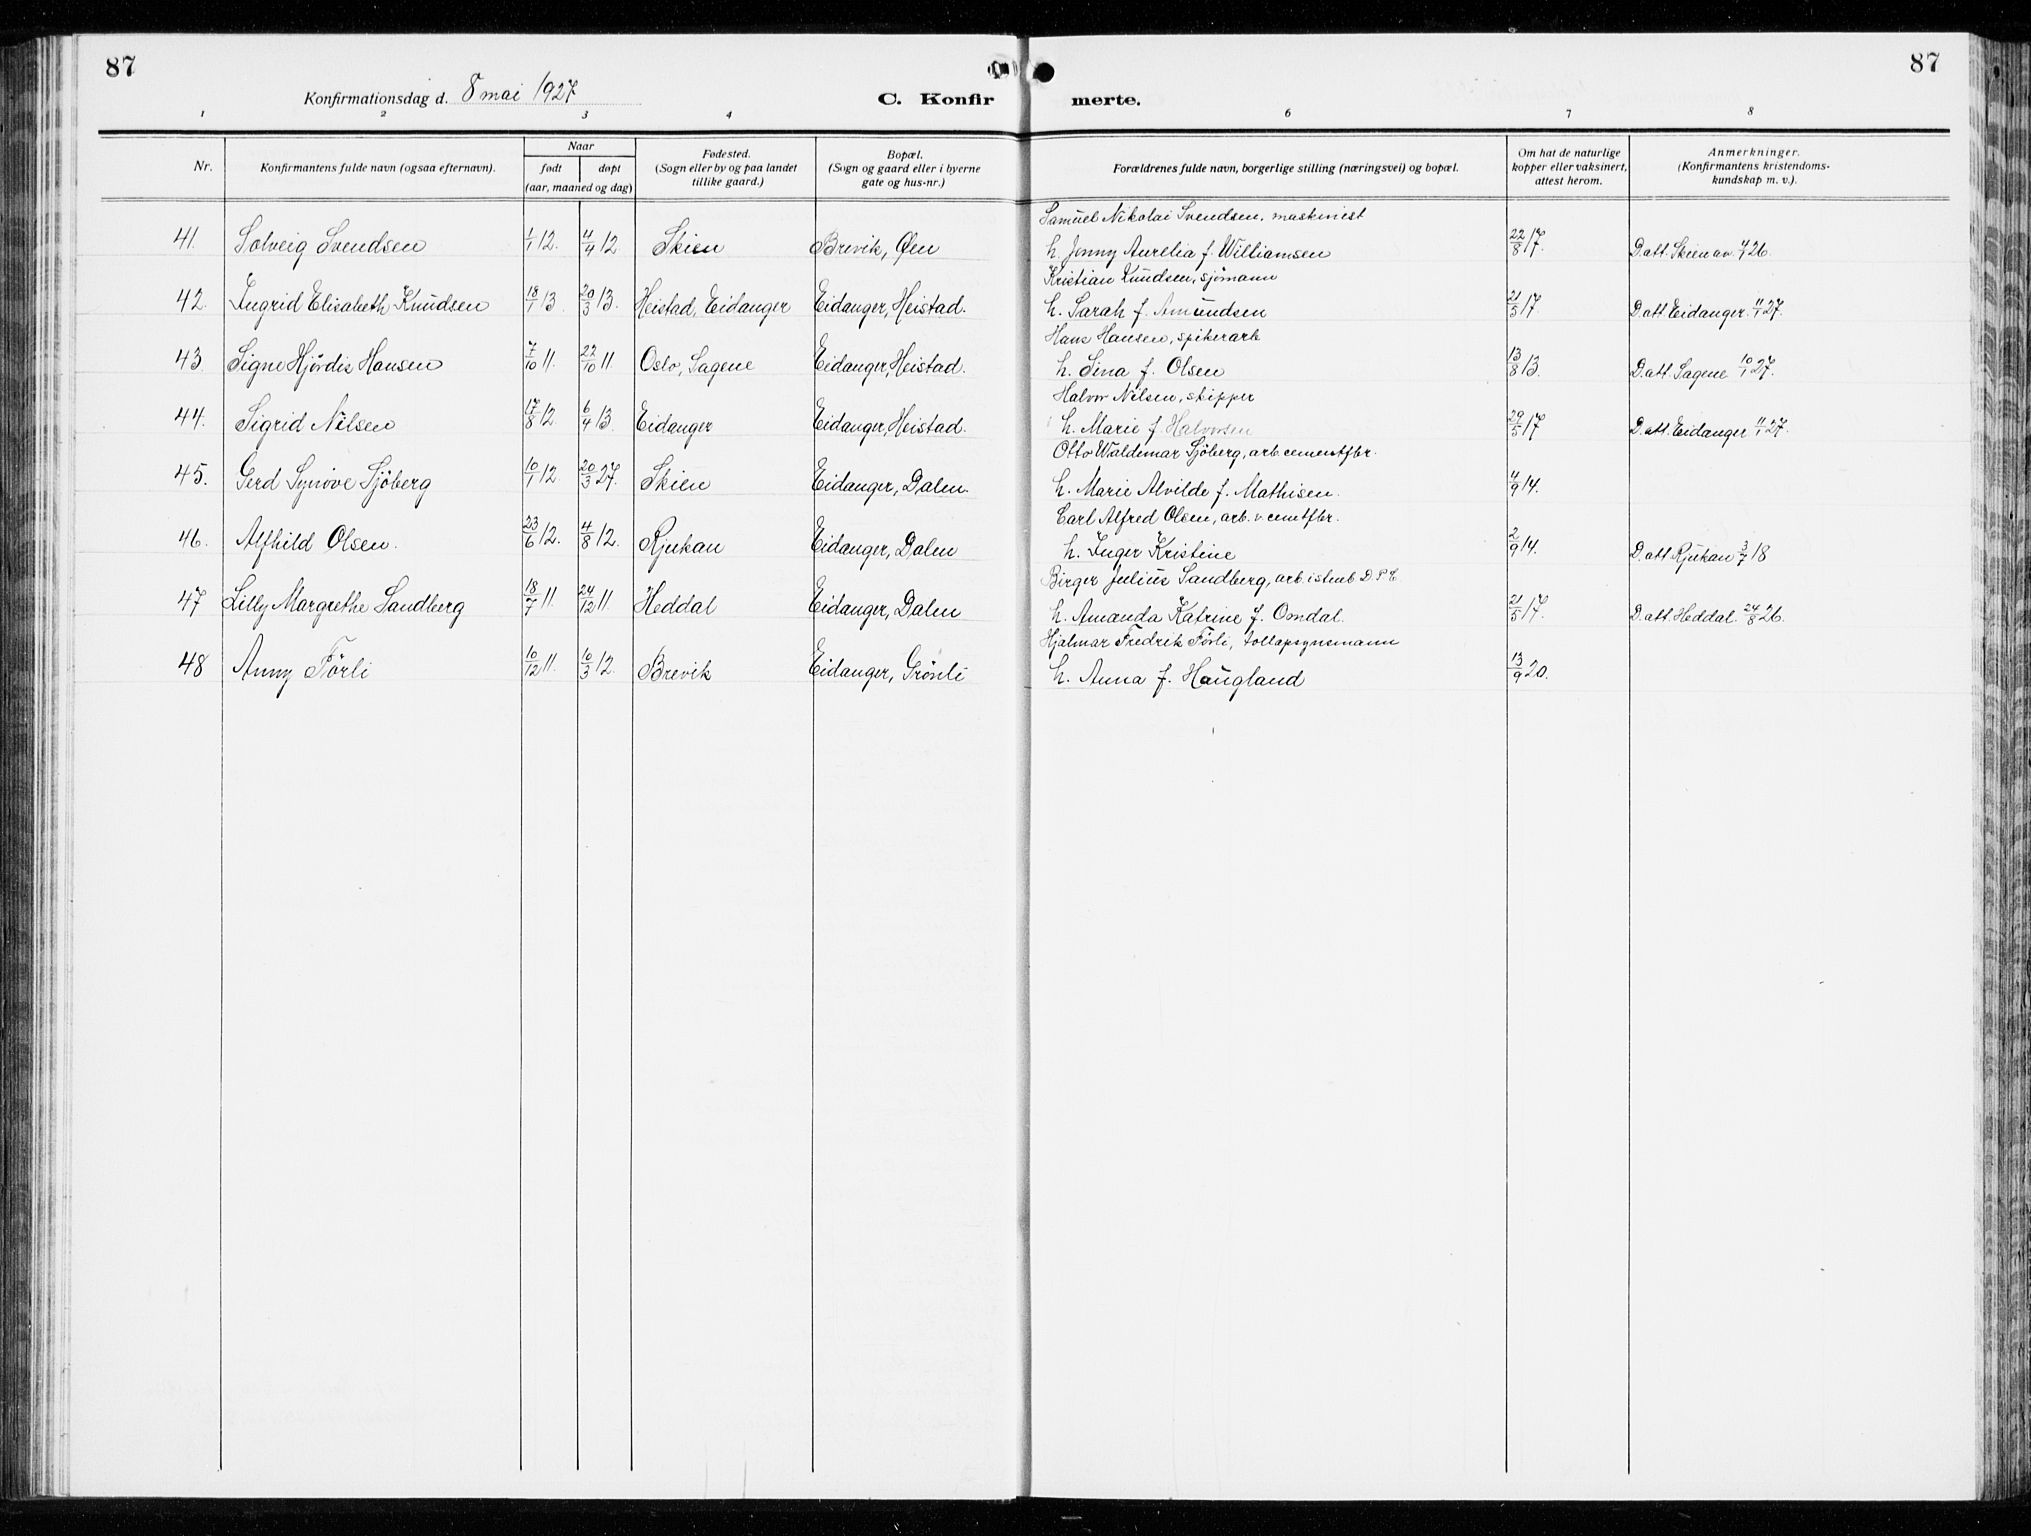 87
87
Konfirmationsdag d. 8 mai 1927
C. Konfir
merte.
1 2 3 4 5 6 7 8
Nr.
Konfirmantens fulde navn (ogsaa efternavn).
Naar
født
døpt
(aar, maaned og dag)
Fødested.
(Sogn eller by og paa landet
tillike gaard.)
Bopæl.
(Sogn og gaard eller i byerne
gate og hus-nr.)
Forældrenes fulde navn, borgerlige stilling (næringsvei) og bopæl.
Om hat de naturlige
kopper eller vaksinert,
attest herom.
Anmerkninger.
(Konfirmantens kristendoms-
kundskap m. v.).
Samuel Nikolai Svendsen, maskinist
41. Solveig Svendsen 1/1 12. 4/4 12. Skien Brevik, Øen h. Jenny Aurelia f. Williamsen 22/8 17. D.att. Skien av 26.
Kristian Knudsen, sjömann
42. Ingrid Elisabeth Knudsen 18/1 13. 20/3 13. Heistad, Eidanger Eidanger, Heistad. h. Sarah f. Amundsen 21/5 17. D.att Eidanger. 11/1 27.
Hans Hansen, spikerarb
43. Signe Hjördis Hansen 7/10 11. 22/10 11. Oslo, Sagene Eidanger, Heistad. h. Sina f. Olsen 13/8 13. D.att. Sagene 10/1 27.
Halvor Nilsen, skipper
44. Sigrid Nilsen 17/8 12. 6/4 13. Eidanger Eidanger, Heistad. h. Marie f. Halvorsen 29/5 17 D.att. Eidanger 11/1 27.
Otto Waldemar Sjöberg, arb. cementfbr.
45. Gerd Synöve Sjöberg 10/1 12. 20/3 27. Skien Eidanger, Dalen. h. Marie Alvilde f. Mathisen. 4/9 14.
Carl Alfred Olsen, arb. v. cemtfbr.
46. Alfhild Olsen. 23/6 12. 4/8 12. Rjukan Eidanger, Dalen h. Inger Kristine 2/9 14. D.att Rjukan 3/7 18
Birger Julius Sandberg, arb. i stenb D. P. C.
47 Lilly Margrethe Sandberg 18/7 11. 24/12 11. Heddal Eidanger, Dalen h. Amanda Katrine f. Omdal. 21/5 17. D.att. Heddal. 24/8 26.
Hjalmar Fredrik Förli, tollopsynsmann
48 Anny Förli 10/12 11. 10/3 12. Brevik Eidanger, Grönli h. Anna f. Haugland 13/9 20.